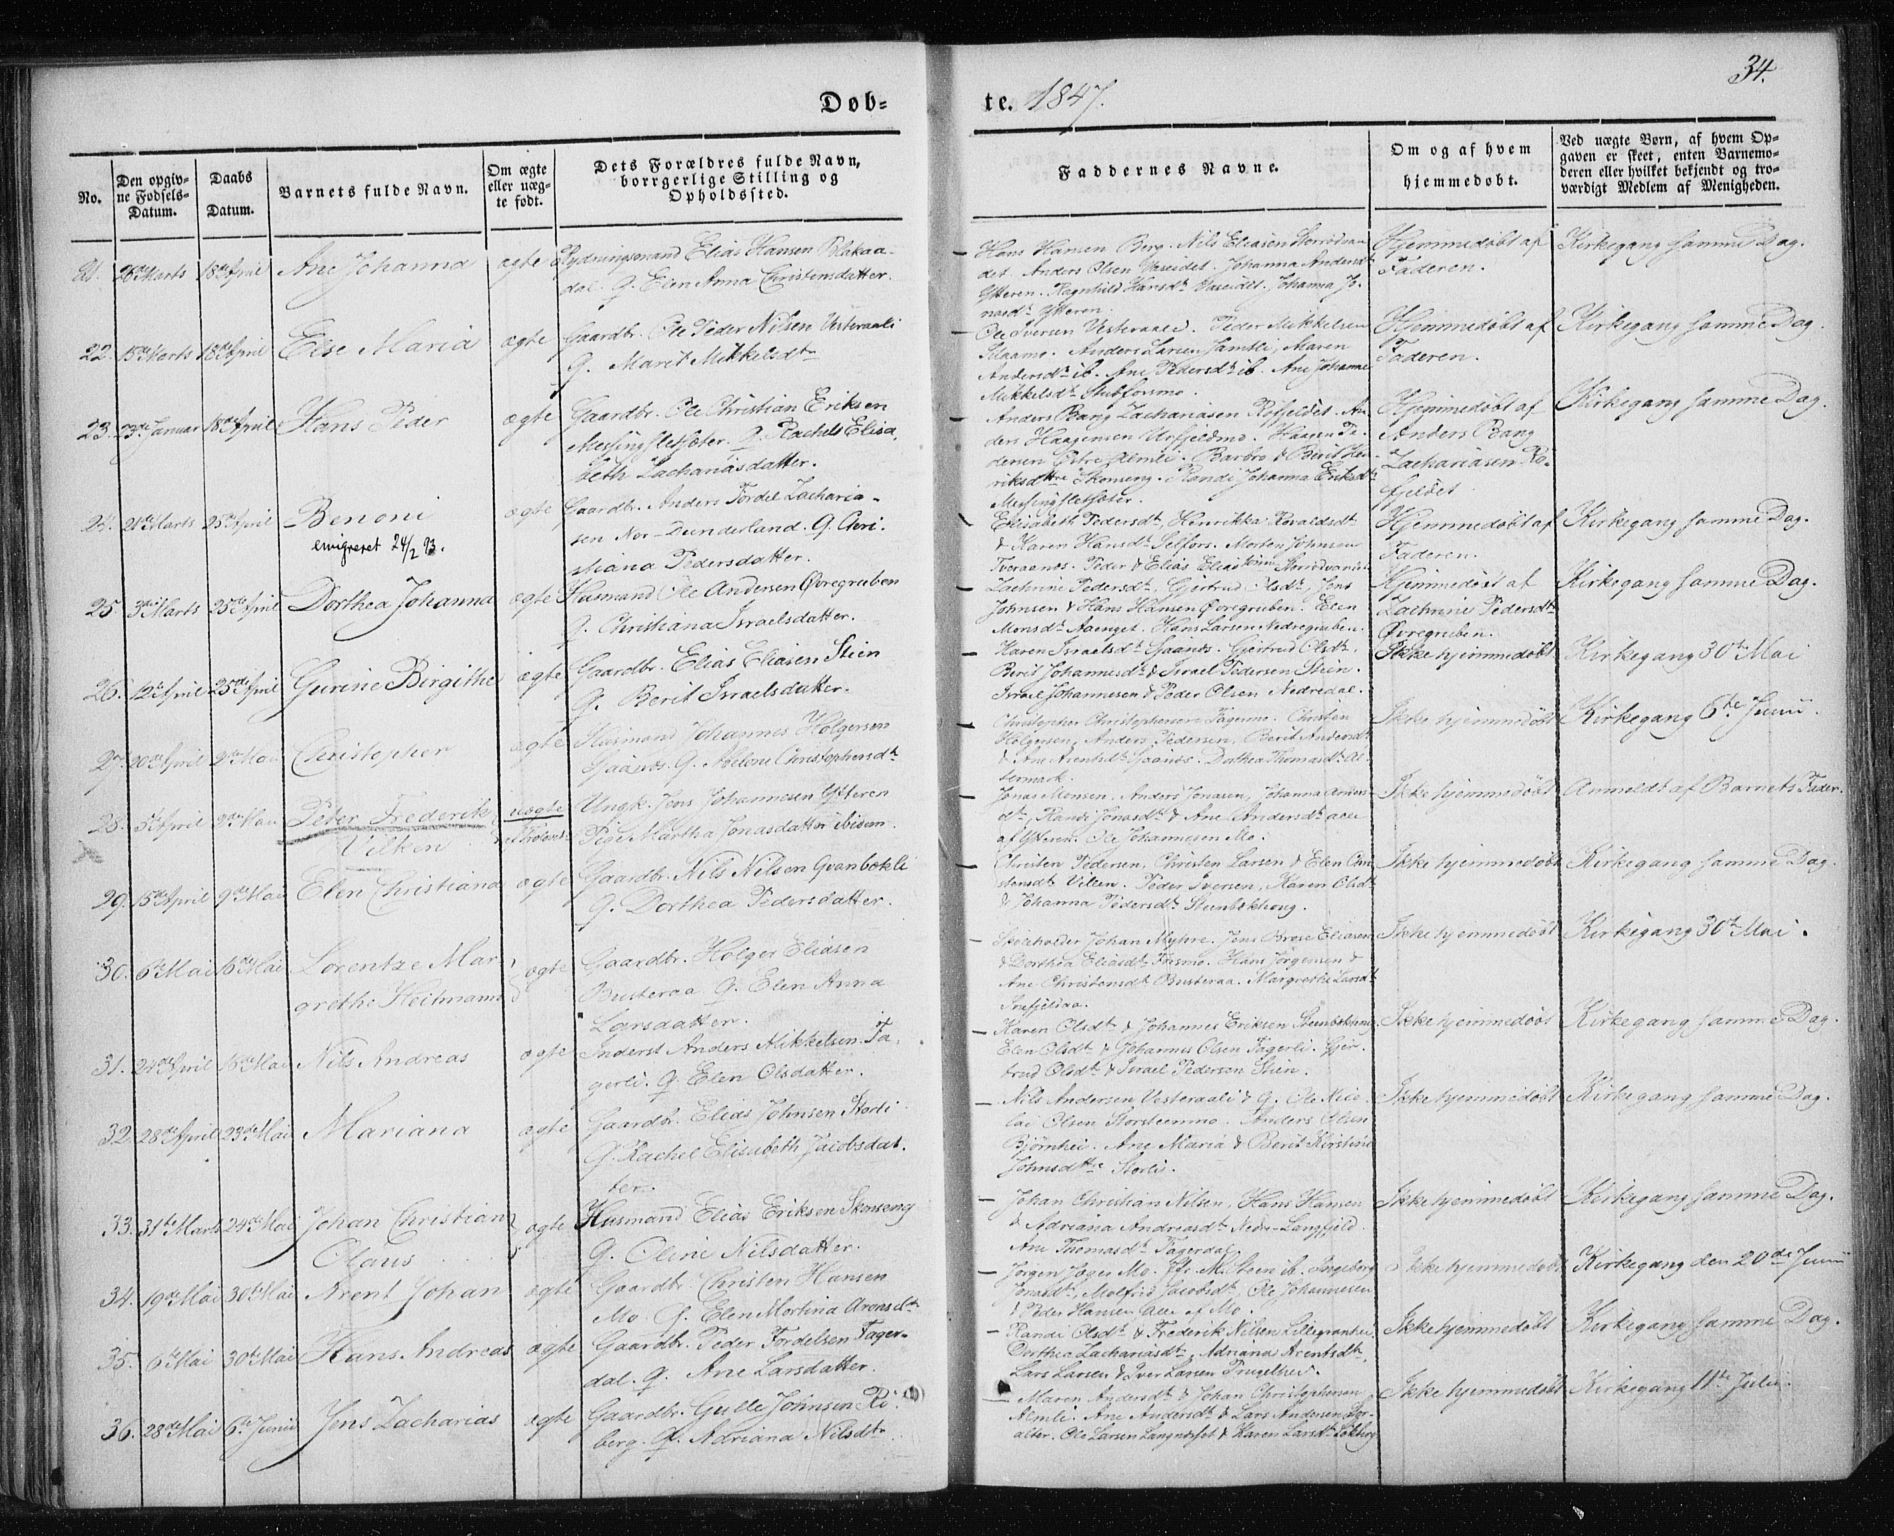 34.
Døb-
te. 1847.
No.
Den opgiv-
ne Fødsels-
Datum.
Daabs
Datum.
Barnets fulde Navn.
Om ægte
eller uæg-
te født.
Dets Forældres fulde Navn,
borrgerlige Stilling og
Opholdssted.
Faddernes Navne.
Om og af hvem
hjemmedøbt.
Ved uægte Børn, af hvem Op-
gaven er skeet, enten Barnemo-
deren eller hvilket bekjendt og tro-
værdigt Medlem af Menigheden.
21. 26de Marts 18de April Ane Johanna ægte Rydningsmand Elias Hansen Plakaa-
dal. G. Elen Anna Christensdatter.
Hans Hansen Berg. Nils Eliasen Storvodvan
det. Anders Olsen Vaseidet. Johanna Andersdt
Ytteren. Ragnhild Hansdt Vaseidet. Johanna Jo-
nasdt Ytteren.
Hjemmedøbt af
Faderen.
Kirkegang samme Dag.
22. 15de Marts 18de April Else Maria ægte Gaardbr. Ole Peder Nilsen Vesteraali
G. Marit Mikkelsdtr
Ole Iversen Vesteraali. Peder Mikkelsen
Anders Larsen Jamtli, Maren
Andersdt ib. Ane Pedersdt ib. Ane Johanna
Mikkelsdt Stubforsmo.
Hjemmedøbt af
Faderen.
Kirkegang samme Dag.
23. 23de Januar 18de April Hans Peder ægte Gaardbr. Ole Christian Eriksen
Messingsletsæter. G. Rachel Elisa-
beth Zachariasdatter.
Anders Bang Zachariasen Røfjeldet. An-
ders Haagensen Urfjeldmo. Haagen Pe-
dersen Østre Almli. Barbro & Berit Hen-
riksdttre Skonseng. Randi Johanna Eriksdt
Messingsletsæter.
Hjemmedøbt af
Anders Bang
Zachariasen Rø-
fjeldet.
Kirkegang samme Dag.
24. 21de Marts 25de April Benoni
emigreret 24/2 93.
ægte Gaardbr. Anders Fordel Zacharia-
sen Nor-Dunderland. G. Chri-
stiana Pedersdatter.
Elisabeth Pedersdt, Henrikka Ronaldsdt
& Karen Hansdt Selfors. Morten Johnsen
Tveraanes. Peder & Elias Elias
Hjemmedøbt af
Faderen.
Kirkegang samme Dag.
25. 3die Marts 25de April Dorthea Johanna ægte Husmand Ole Andersen Øvregruben
G. Christiana Israelsdatter.
Zachrine Pedersdt, Gjertrud Olsdt, Jens
Johnsen & Hans Hansen Øvregruben. Elen
Monsdt Aaenget. Hans Larsen Nedregruben.
Hjemmedøbt af
Zachrine Pedersdt
Øvregruben.
Kirkegang samme Dag.
26. 12te April 25de April Gurine Birgithe ægte Gaardbr. Elias Eliasen Stien
G. Berit Israelsdatter.
Karen Israelsdt Sjaanes. Gjertrud Olsdt,
Berit Johannesdt & Israel Pedersen Stien.
Israel Johannesen & Peder Olsen Nedredal.
Ikke hjemmedøbt
Kirkegang 30te Mai
27. 20de April 9de Mai Christopher ægte Husmand Johannes Holgersen
Sjaanes. G. Abelene Christophersdtr
Christopher Christophersen Fagermo. Christen
Holgersen, Anders Pedersen, Berit Andersdt
& Ane Arentsdt Sjaanes. Dorthea Thomasdt Al-
termark.
Ikke hjemmedøbt
Kirkegang 6te Junii.
28. 5te April 9de Mai Peter Frederik
Vilken
uægte
Ungk. Jens Johannesen Ytteren
Pige Martha Jonasdatter ibidem.
Jonas Monsen. Anders Jonasen, Johanna Anders-
dt, Randi Jonasdt & Ane Andersdt alle
af Ytteren. Ole Johannesen Mo.
Ikke hjemmedøbt
Anmeldt af Barnets Fader.
29. 15de April 9de Mai Elen Christiana ægte Gaardbr. Nils Nilsen Gvanbækli
G. Dorthea Pedersdatter.
Christen Pedersen, Christen Larsen & Elen Chri-
stensdt Villen. Peder Iversen, Karen Olsdt
& Johanna Pedersdt Steenbækhoug.
Ikke hjemmedøbt
Kirkegang samme Dag.
30. 6te Mai 16de Mai Lorentze Mar
grethe Heitmann
ægte Gaardbr. Holger Eliasen
Busteraa G. Elen Anna
Larsdatter.
Skoleholder Johan Myhre. Jens Brose Eliasen
& Dorthea Eliasdt Fasmo. Hans Jørgensen &
Ane Christensdt Busteraa. Margrethe Larsdt
Snefjeldaa.
Ikke hjemmedøbt
Kirkegang 30te Mai.
31. 24de April 16de Mai Nils Andreas ægte Inderst Anders Mikkelsen Fa-
gerli. G. Elen Olsdatter.
Karen Olsdt & Johannes Eriksen Steenbækhoug
Elen Olsdt & Johannes Olsen Fagerli. Gjer-
trud Olsdt & Israel Pedersen Stien.
Ikke hjemmedøbt
Kirkegang samme Dag.
32. 28de April 23de Mai Mariana ægte Gaardbr. Elias Johnsen Storli
G. Rachel Elisabeth Jacobsdat-
ter.
Nils Andersen Vesteraali & G. Ole Nico-
lai Olsen Storsteenmo. Anders Olsen
Bjørnhei. Ane Maria & Berit Kirstine
Johnsdttre Storli.
Ikke hjemmedøbt
Kirkegang samme Dag.
33. 31te Marts 24de Mai Johan Christian
Olaus
ægte Husmand Elias Eriksen Skonseng
G. Oline Nilsdatter.
Johan Christian Nilsen, Hans Hansen
& Adriana Andreasdt Nedre-Langfjeld.
Ane Thomasdt Fagerdal.
Ikke hjemmedøbt
Kirkegang samme Dag.
34. 19de Mai 30te Mai Arent Johan ægte Gaardbr. Christen Hansen
Mo. G. Elen Martina Aronsdtr
Jørgen Jæger Mo. ib. Ingeborg
Jonasdt, Molfrid Jacobsdt, Ole Johannesen
& Peder Hansen alle af Mo.
Ikke hjemmedøbt
Kirkegang den 20de Junii
35. 6te Mai 30te Mai Hans Andreas ægte Gaardbr. Peder Fordelsen Fager-
dal. G. Ane Larsdatter.
Randi Olsdt & Frederik Nilsen Lillegranhei,
Dorthea Zachariasdt, Adriana Arentsdt,
Lars Larsen & Iver Larsen
Ikke hjemmedøbt
Kirkegang samme Dag.
36. 28de Mai 6te Junii Jens Zacharias ægte Gaardbr. Gulle Johnsen Rø-
berg. G. Adriana Nilsdtr
Maren Andersdt & Johan Christophersen
Almli. Ane Andersdt & Lars Andersen Sor-
alter. Ole Larsen Langnesset & Karen Larsdt
Ikke hjemmedøbt
Kirkegang 11te Julii.